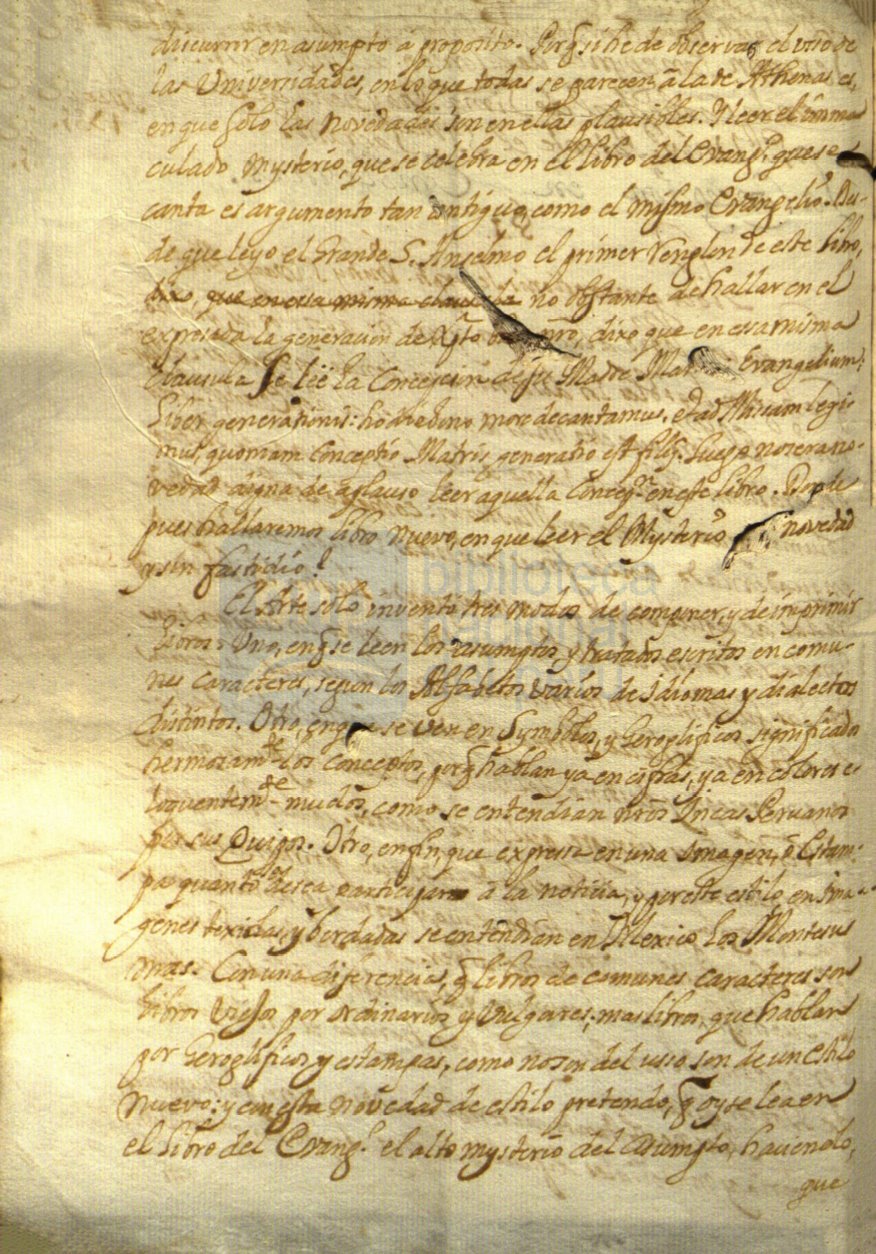 discurrir en asumpto á proposito. Porq̃ si he de observar el vso de
las Universidades, en lo que todas se parecen â la de Athenas es,
en que solo las novedades son en ellas plausibles. Y leer el imma
culado Mysterio, que se celebra en el libro del Evang.º que se
canta es argumento tan antiguo, como el mismo Evangelio. Des-
de que leyo el Grande S. Anselmo el primer renglon de este libro,
dixo, que en essa misma clausula no obstante de hallar en el
expresada la generacion de Xpto nrõ, dixo que en essa misma
clausula se leë la Concepcion de su Madre Evangelium:
Liber generationis: hodierno more decantamus, et ad Missam legi
mus, quoniam Conceptio Matris generatio est filij. Luego no sera no-
vedad digna de aplauso leer aquella Concepn. en este libro. Donde
pues hallaremos libro nuevo, en que leer el Mysterio novedad
y sin fastidio?
El Arte solo inventó tres modos de componer, y de imprimir
libros. Uno, en q̃ se leen los asumptos y tratados escritos en comu-
nes caracteres, segun los Alfabetos varios de idiomas y dialectos
distintos. Otro, en que se ven en Symbolos, y Geroglificos significados
hermosamte. los conceptos, porq̃ hablan ya en cifras, ya en colores e-
loquentemte. mudos, como se entendian nrõs Yncas Peruanos
por sus Quipos. Otro, en fin, que expressa en una Imagen, ô Estam-
pa quanto desea participar a la noticia, y por este estilo, en Ima-
genes texidas, y bordadas se entendian en Mexico los Montesus
mas. Con una diferencia, q̃ libros de comunes caracteres son
libros viejos por ordinarios y vulgares; mas libros, que hablan
por Geroglificos y estampas, como no son del usso son de un estilo
nuevo: y con esta novedad de estilo pretendo, q̃ oy se lea en
el libro del Evang.º el alto mysterio del Asumpto, haviendo,
que